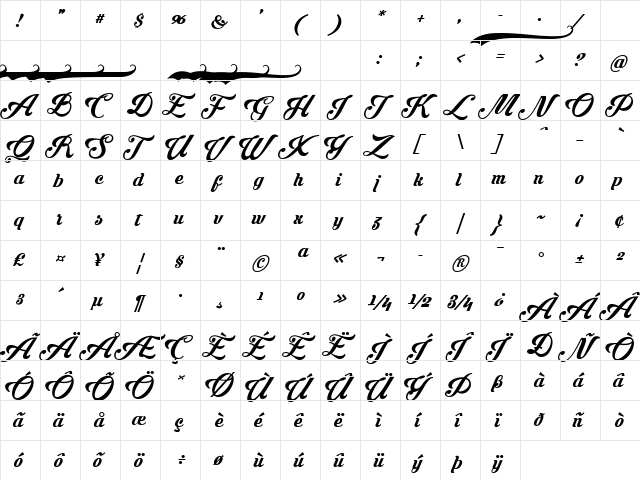 ! " # $ % & ' ( ) * + , - . /
: ; < = > ? @
A B C D E F G H I J K L M N O P
Q R S T U V W X Y Z [ \ ] ^ _ `
a b c d e f g h i j k l m n o p
q r s t u v w x y z { | } ~ ¡ ¢
£ ¤ ¥ ¦ § ¨ © ª « ¬ - ® ¯ ° ± ²
³ ´ µ ¶ · ¸ ¹ º » ¼ ½ ¾ ¿ À Á Â
Ã Ä Å Æ Ç È É Ê Ë Ì Í Î Ï Ð Ñ Ò
Ó Ô Õ Ö × Ø Ù Ú Û Ü Ý Þ ß à á â
ã ä å æ ç è é ê ë ì í î ï ð ñ ò
ó ô õ ö ÷ ø ù ú û ü ý þ ÿ